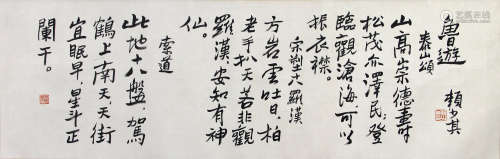 鲁遊
赖少其
泰山頌
山高崇德壽
松茂亦澤民登
臨觀滄海可以
振衣襟
宗型大羅漢
方岩雲吐日柏
老手扒天若非觀
羅漢安知有神
仙
索道
此地十八盤駕
鶴上南天天街
宜眠早星斗正
闌干